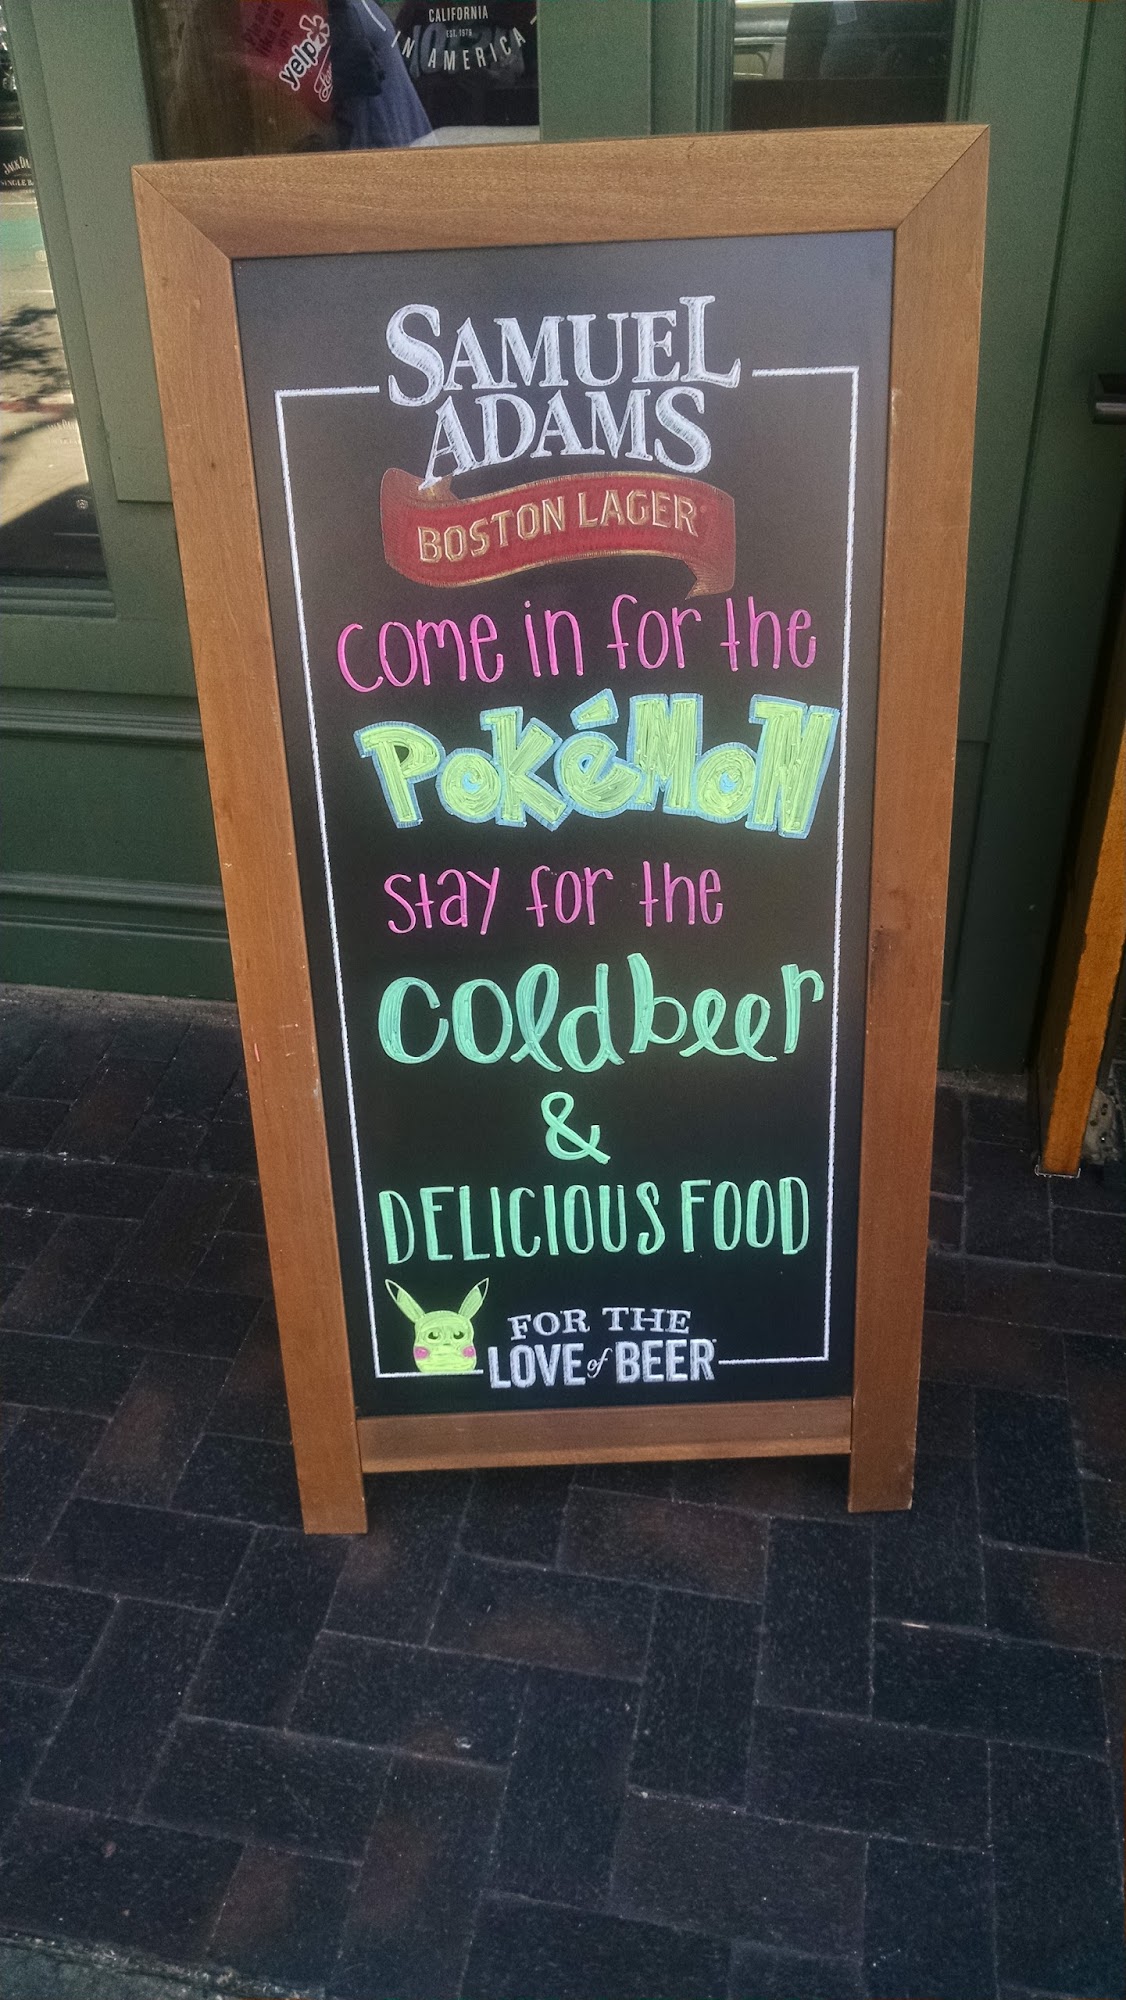 CALIFORNIA
EST. 1979
IN AMERICA
yelp
JACK DA
SINGLE BA
SAMUEL
ADAMS
BOSTON LAGER
come in for the
POKéMON
stay for the
cold beer
&
DELICIOUS FOOD
FOR THE
LOVE of BEER